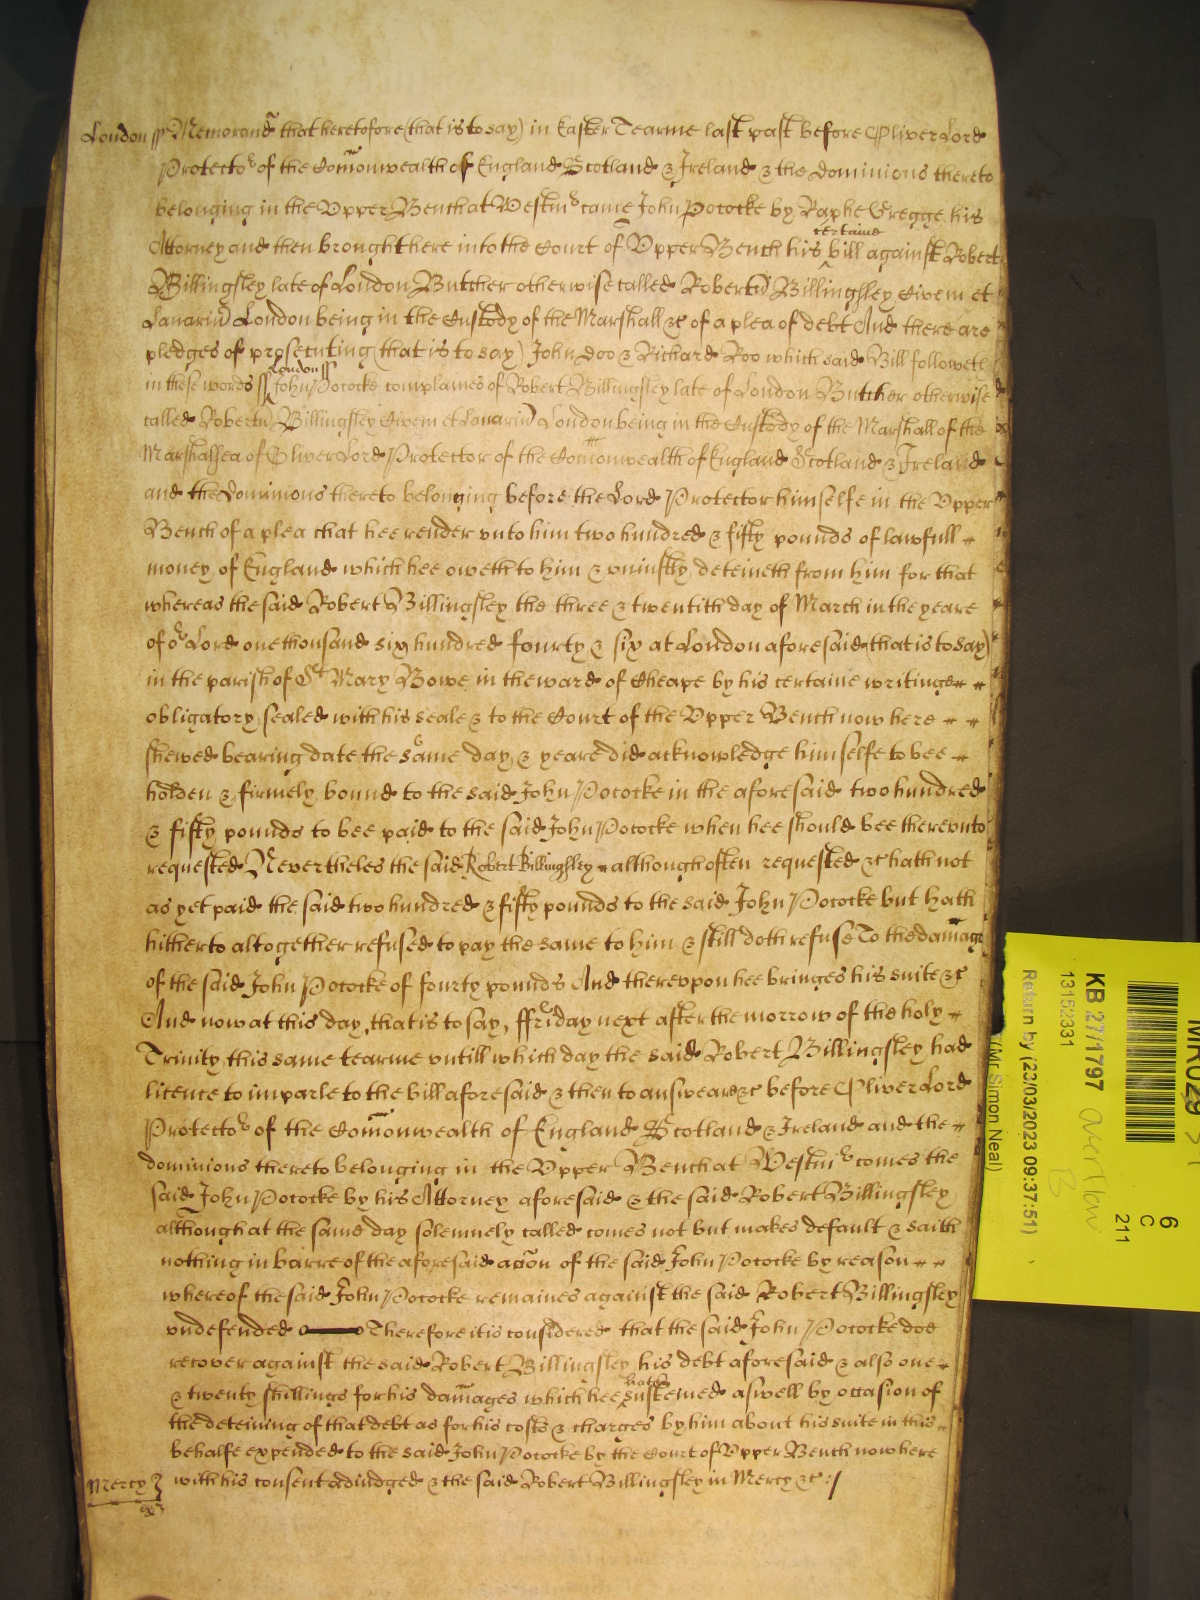 London ss Memorand that heretofore (that is to say) in Easter Tearme last past before Oliver Lord
Protector of the Comonwealth of England Scotland & Ireland & the dominions thereto
belonging in the Upper Bench at Westmr came John Pococke by Raphe Gregge his
Attorney and then brought here into the Court of Upper Bench his certaine bill against Robert
Billingsley late of London Butcher otherwise called Robertu Billingsley Civem et
Lanariu London being in the Custody of the Marshall &c of a plea of debt And there are
pledges of prosecuting (that is to say) John Doo & Richard Roo which said Bill followeth
in these words ss London ss John Pococke complaines of Robert Billingsley late of London Butcher otherwise
called Robertu Billingsley Civem et Lanariu London being in the Custody of the Marshall of the
Marshalsea of Oliver Lord Protector of the Comonwealth of England Scotland & Ireland
and the Dominions thereto belonging before the Lord Protector himselfe in the Upper
Bench of a plea that hee render unto him two hundred & fifty pounds of lawfull
money of England which hee oweth to him & uniustly deteineth from him for that
whereas the said Robert Billingsley the three & twentith day of March in the yeare
of or Lord one thousand six hundred fourty & six at London aforesaid (that is to say)
in the parish of St Mary Bowe in the ward of Cheape by his certaine writinge
obligatory sealed with his seale & to the Court of the Upper Bench now here
shewed bearing date the same day & yeare did acknowledge himselfe to bee
holden & firmely bound to the said John Pococke in the aforesaid two hundred
& fifty pounds to bee paid to the said John Pococke when hee should bee thereunto
requested Nevertheles the said Robert Billingsley although often requested &c hath not
as yet paid the said two hundred & fifty pounds to the said John Pococke but hath
hitherto altogether refused to pay the same to him & still doth refuse To the damage
of the said John Pococke of fourty pounds And thereupon hee bringes his suite &c
And now at this day, that is to say, ffriday next after the morrow of the holy
Trinity this same tearme untill which day the said Robert Billingsley had
licence to imparle to the bill aforesaid & then to answeare &c before Oliver Lord
Protector of the Comonwealth of England Scotland & Ireland and the
dominions thereto belonging in the Upper Bench at Westmr comes the
said John Pococke by his Attorney aforesaid & the said Robert Billingsley
although at the same day solemnely called comes not but makes default & saith
nothing in barre of the aforesaid accon of the said John Pococke by reason
whereof the said John Pococke remaines against the said Robert Billingsley
undefended Therefore it is considered that the said John Pococke doe
recover against the said Robert Billingsley his debt aforesaid & also one
& twenty shillings for his damages which hee hath susteined aswell by occasion of
the deteining of that debt as for his costs & charges by him about his suite in this
behalfe expended to the said John Pococke by the Court of Upper Bench now here
Mercy with his consent adiudged & the said Robert Billingsley in Mercy &c
KB 27/1797
13152331
Return by (23/03/2023 09:37:51)
(Mr Simon Neal)
overflow
B
6
C
211